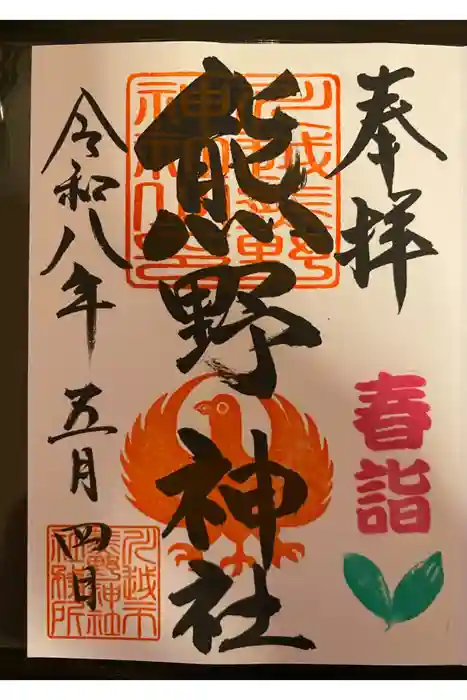 奉拝
春詣
川越熊野
神社之印
熊野神社
令和八年 五月 四日
川越市
熊野神社
社務所